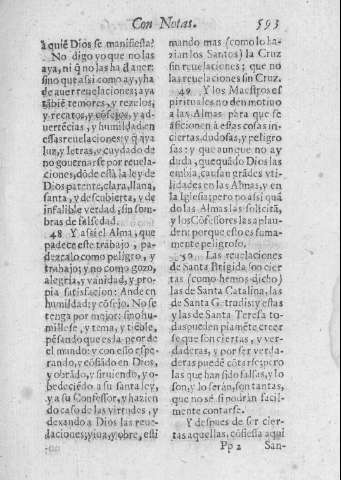 Con Notas. 593
à quiẽ Dios se manifiesta?
No digo yo que no las
aya, ni q̃ no las ha d aver:
sino que assi como ay, y ha
de aver revelaciones; aya
tãbiẽ temores, y rezelos,
y recatos, y cõsejos, y ad-
vertẽcias, y humildad en
essas revelaciones: y q̃ aya
luz, y letras, y cuydado de
no governarse por revela-
ciones, dõde està la ley de
Dios patente, clara, llana,
santa, y descubierta, y de
infalible verdad, sin som-
bras de falsedad.
48 Y assi el Alma, que
padece este trabajo, pa-
dezcalo como peligro, y
trabajo; y no como gozo,
alegria, y vanidad, y pro-
pia satisfacion: Ande en
humildad; y cõsejo. No se
tenga por mejor: sino hu-
millese, y tema, y tiẽble,
pẽsando que es la peor de
el mundo: y con esso espe-
rando, y cõfiãdo en Dios,
y obrãdo, y sirviendo, y o-
bedeciẽdo a su santa ley,
y a su Confessor, y hazien
do caso de las virtudes, y
dexando a Dios las reve-
laciones; viva, y obre, esti
mando mas (como lo ha-
zian los Santos) la Cruz
sin revelaciones; que no
las revelaciones sin Cruz.
49 Y los Maestros es
pirituales no den motivo
a las Almas para que se
aficionen à estas cosas in-
ciertas, dudosas, y peligro
sas: y que aunque no ay
duda, que quãdo Dios las
embia, causan grãdes vti-
lidades en las Almas, y en
la Iglesia; pero no assi quã
do las Almas las solicitã,
y los Cõfessores las aplau-
den: porque esto es suma-
mente peligroso.
50 Las revelaciones
de Santa Brigida son cier
tas (como hemos dicho)
las de Santa Catalina, las
de Santa Getrudis; y estas
y las de Santa Teresa to-
das pueden piamẽte creer
se que son ciertas, y ver-
daderas, y por ser verda-
deras puedẽ cõtarse; pero
las que han sido falsas, y lo
son, y lo serán, son tantas,
que no sè si podràn facil-
mente contarse.
Y despues de ser cier-
tas aquellas, cõfiessa aqui
Pp 2 San-